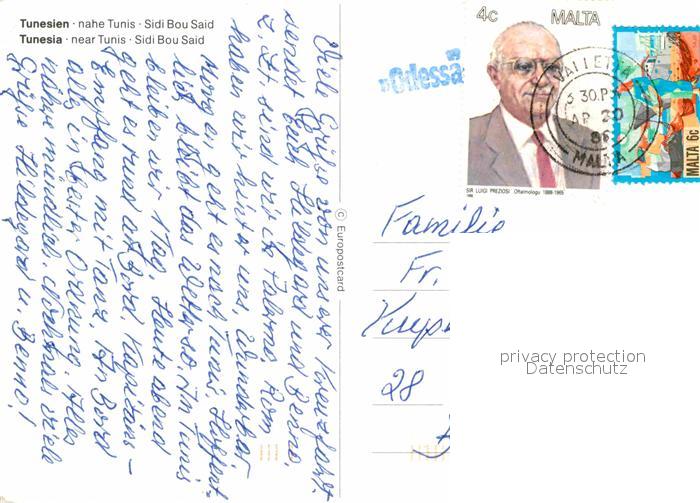 Tunesien · nahe Tunis · Sidi Bou Said
Tunesia · near Tunis · Sidi Bou Said
Viele Grüße von unserer Kreuzfahrt
sendet Euch Hildegard und Benno.
z. Zt. sind wir in Palermo, Rom
haben wir hinter uns, Wunderbar
Morgen geht es nach Tunis. Hoffent-
lich bleibt das Wetter so. In Tunis
bleiben wir 1 Tag. Heute abend
geht es rund an Bord. Kapitäns-
Empfang mit Tanz. An Bord
alles in bester Ordnung. Alles
nähere mündlich. Nochmals viele
Grüße Hildegard u. Benno!
© Europostcard
"Odessa"
4c MALTA
SIR LUIGI PREZIOSI Oftalmologu 1888-1965
VALLETTA
3.30.PM
AP 20
MALTA
MALTA 6c
Familie
Fr.
28
privacy protection
Datenschutz